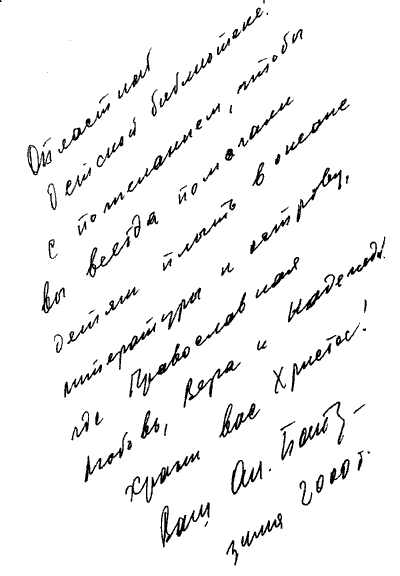 Областной
детской библиотеке!
С пожеланием, чтобы
вы всегда помогали
детям плыть в океане
литературы к острову,
где Православная
Любовь, Вера и Надежда!
Храни вас Христос!
Ваш Ал.
зима 2000 г.